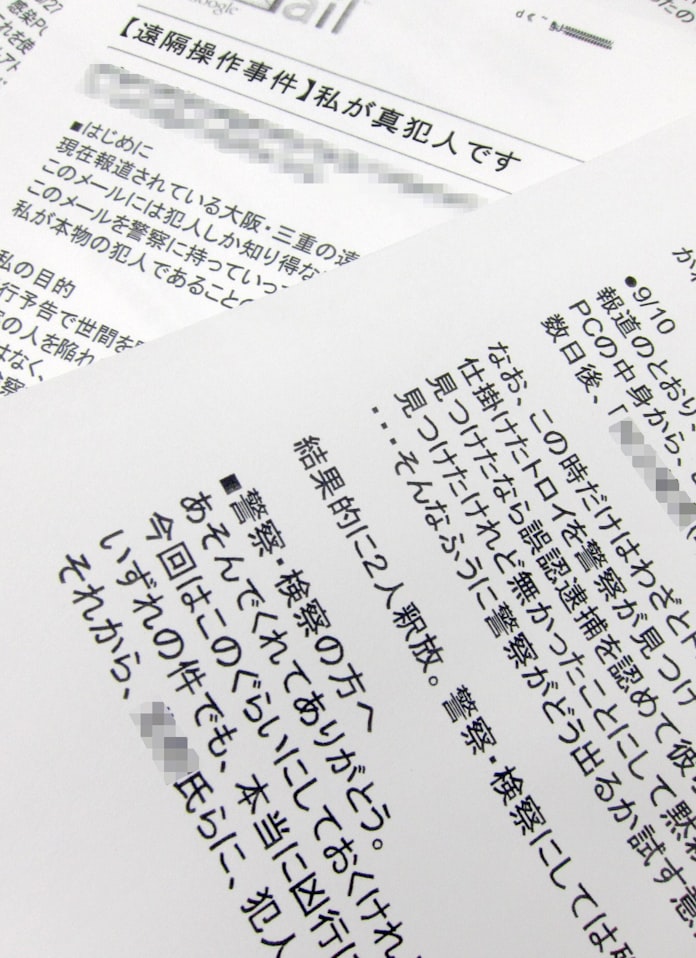 Google
ail
【遠隔操作事件】私が真犯人です
■はじめに
現在報道されている大阪・三重の遠
このメールには犯人しか知り得な
このメールを警察に持っていっ
私が本物の犯人であることの
私の目的
行予告で世間を
の人を陥れ
はなく、
●9/10
報道のとおり、
PCの中身から、
数日後、「
なお、この時だけはわざと
仕掛けたトロイを警察が見つけ
見つけたなら誤認逮捕を認めて彼
見つけたけれど無かったことにして黙
...そんなふうに警察がどう出るか試す意
結果的に2人釈放。警察・検察にしては
■警察・検察の方へ
あそんでくれてありがとう。
今回はこのぐらいにしておくけれ
いずれの件でも、本当に凶行に
それから、
氏らに、犯人